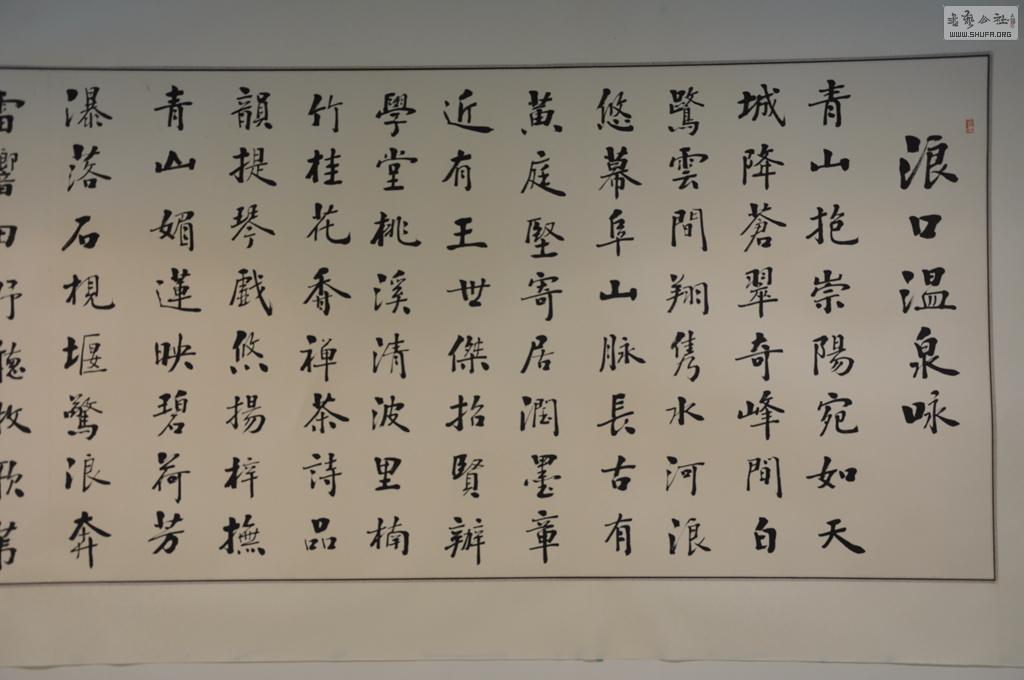 浪口温泉咏
青山抱崇陽宛如天
城降蒼翠奇峰間白
鷺雲間翔隽水河浪
悠幕阜山脉長古有
黄庭堅寄居潤墨章
近有王世傑招賢辦
學堂桃溪清波里楠
竹桂花香禅茶詩品
韻提琴戲悠揚梓撫
青山媚蓮映碧荷芳
瀑落石枧堰驚浪奔
雷響田野聽牧歌第
書藝公社
WWW.SHUFA.ORG